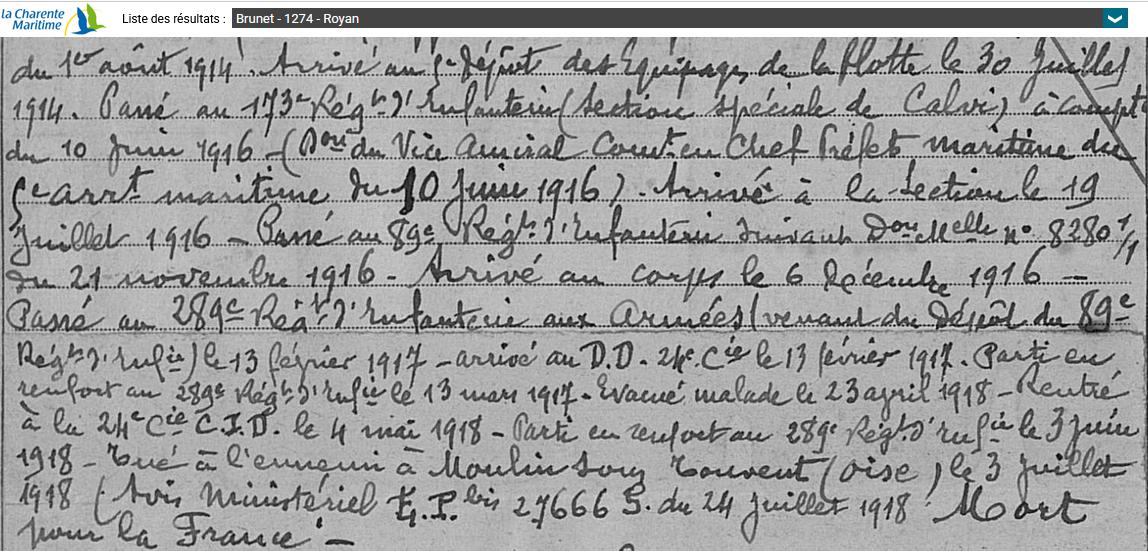 la Charente
Maritime
Liste des résultats : Brunet - 1274 - Royan
du 1er août 1914. Arrivé au 5e Dépôt des Equipages de la flotte le 30 Juillet
1914. Passé au 173e Régt d'Infanterie (Section spéciale de Calvi) à compt
du 10 Juin 1916 - (Don du Vice Amiral Comt en Chef Préfet maritime du
5e arrt maritime du 10 Juin 1916). Arrivé à la Section le 19
Juillet 1916 - Passé au 89e Régt d'Infanterie suivant Don Melle no 8280 1/1
du 21 novembre 1916 - Arrivé au corps le 6 Décembre 1916 -
Passé au 289e Régt d'Infanterie aux Armées (venant du Dépôt du 89e
Régt d'Infie) le 13 février 1917 - arrivé au D.D. 24e Cie le 13 février 1917. Parti en
renfort au 289e Régt d'Infie le 13 mars 1917 - Evacué malade le 23 avril 1918 - Rentré
à la 24e Cie C.I.D. le 4 mai 1918 - Parti en renfort au 289e Régt d'Infie le 3 Juin
1918 - Tué à l'ennemi à Moulin sous Touvent (Oise) le 3 Juillet
1918 (Avis Ministériel bis 27666 S. du 24 Juillet 1918 Mort
pour la France -